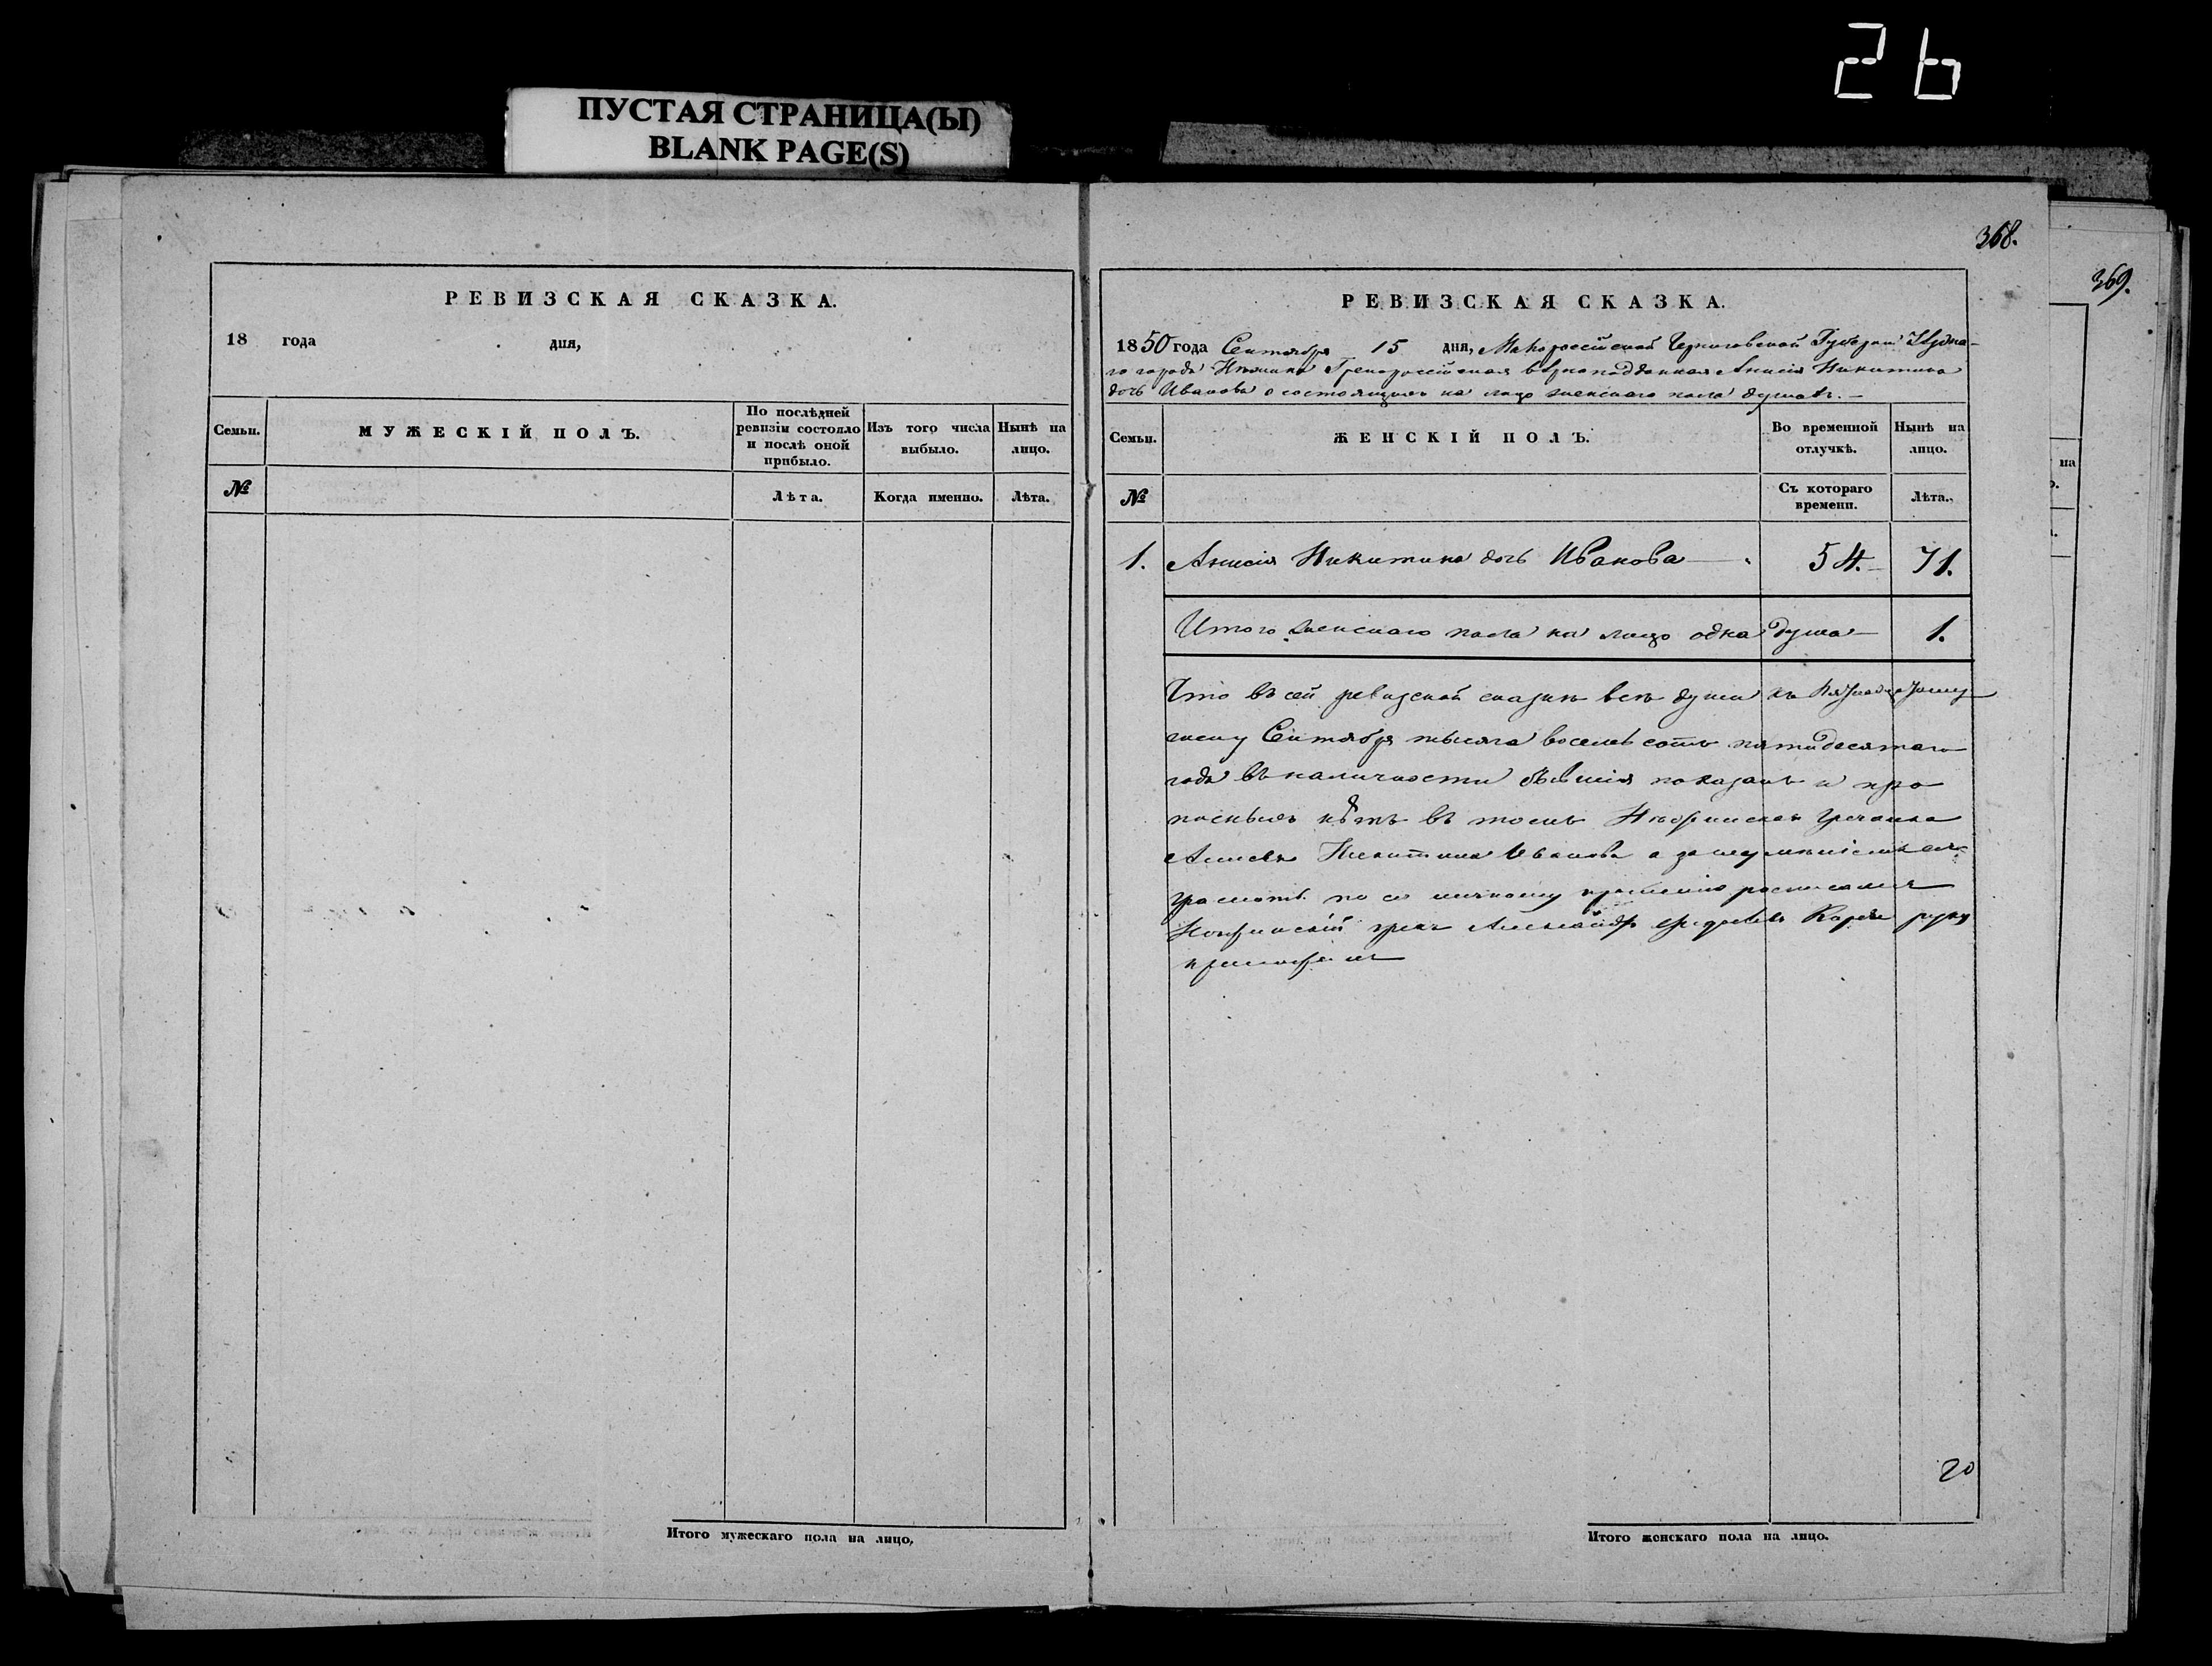 26
ПУСТАЯ СТРАНИЦА(Ы)
BLANK PAGE(S)
РЕВИЗСКАЯ СКАЗКА.
18 года дня,
Семьи.
МУЖЕСКІЙ ПОЛЪ.
По послѣдней ревизіи состояло и послѣ оной прибыло.
Изъ того числа выбыло.
Нынѣ на лицо.
№
Лѣта.
Когда именно.
Лѣта.
Итого мужескаго пола на лицо,
368.
369.
РЕВИЗСКАЯ СКАЗКА.
1850 года Сентября 15 дня, Малороссійской Черниговской Губерніи Уѣздна-
го города Нѣжина Грекороссійская вѣрноподданная Анисія Никитина
дочь Иванова о состоящихъ на лицо женскаго пола душахъ.—
Семьи.
ЖЕНСКІЙ ПОЛЪ.
Во временной отлучкѣ.
Нынѣ на лицо.
№
Съ котораго времени.
Лѣта.
1. Анисія Никитина дочь Иванова — 54.— 71.
Итого женскаго пола на лицо одна душа— 1.
Что въ сей ревизской сказкѣ всѣ души къ
Сентября тысяча восемь сотъ пятидесятаго
года въ наличности бывшія показаны и про
нѣтъ въ томъ Нѣжинская гречанка
Никитина Иванова а за
грамотѣ по ея личному прошенію росписался
Нѣжинскій грекъ руку
приложилъ
20
Итого женскаго пола на лицо.
на